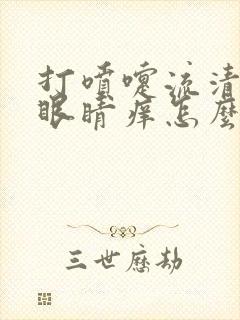 打喷嚏流清
眼睛痒怎麼
三世歷劫